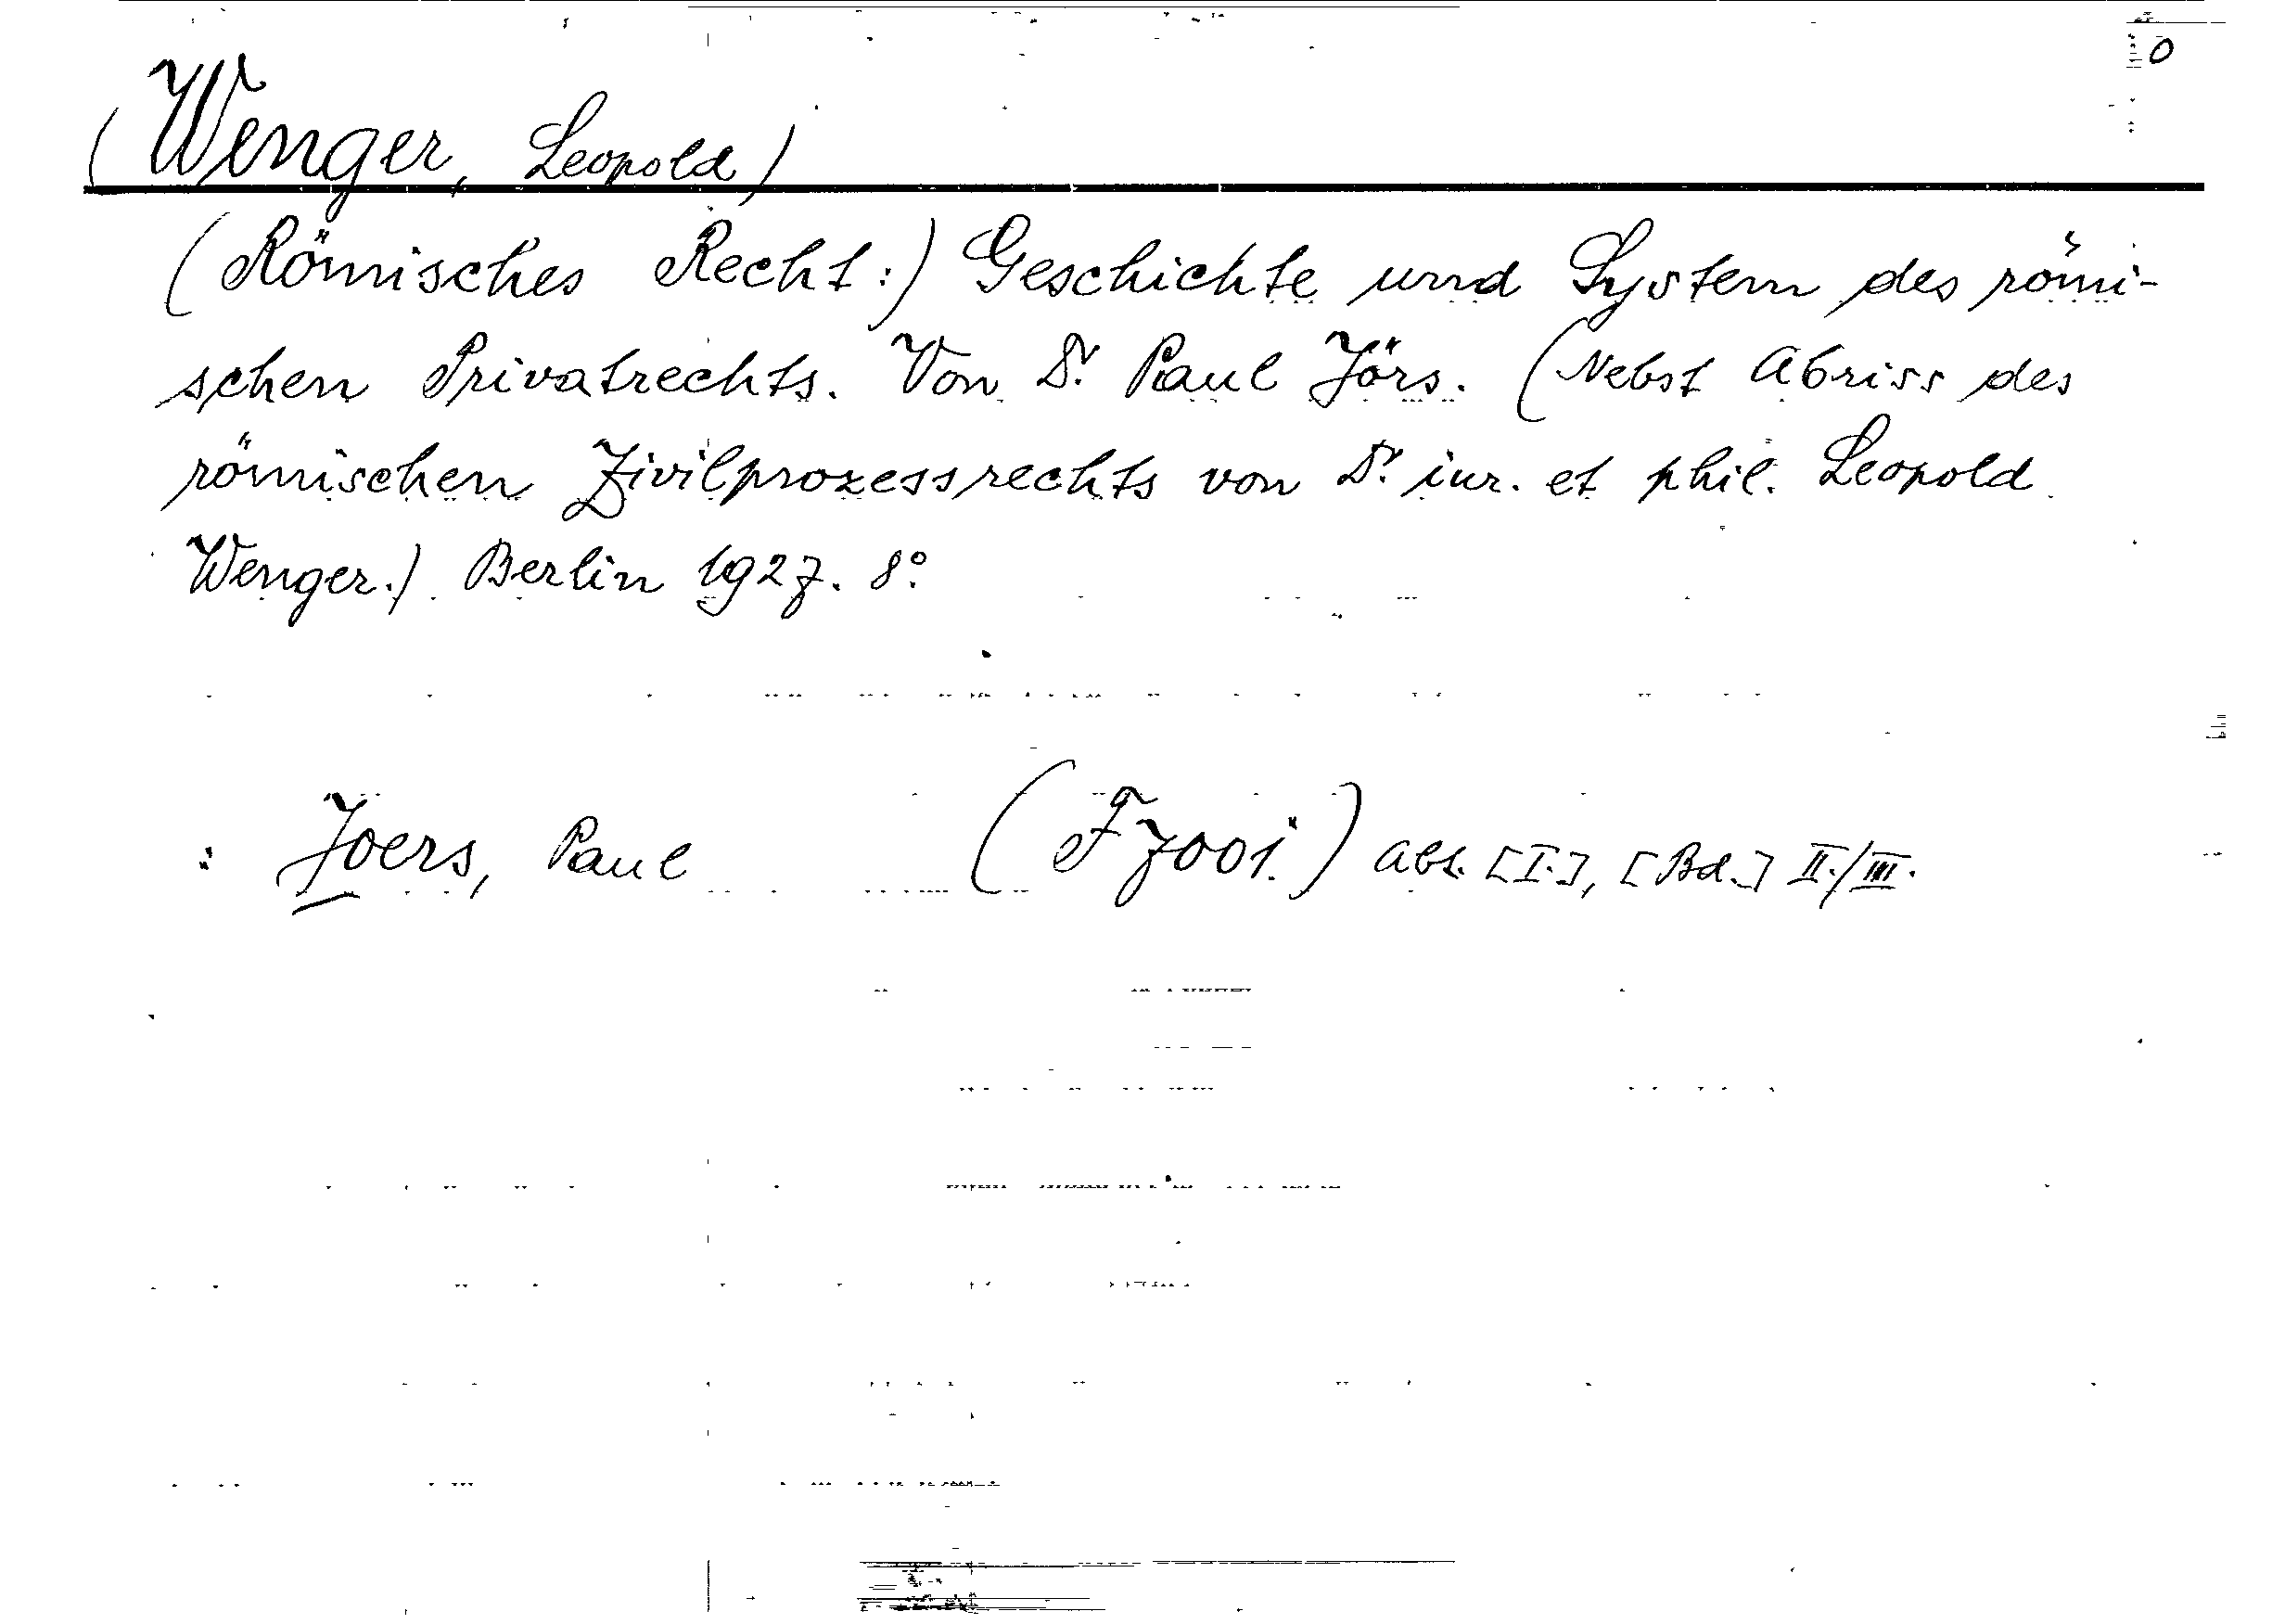 0
(Wenger, Leopold)
(Römisches Recht:) Geschichte und System des römi-
schen Privatrechts. Von Dr. Paul Jörs. (Nebst Abriss des
römischen Zivilprozessrechts von Dr. iur. et phil. Leopold
Wenger.) Berlin 1927. 8°.
: Joers, Paul (F 7001.) abt. [I.], [Bd.] II./III.